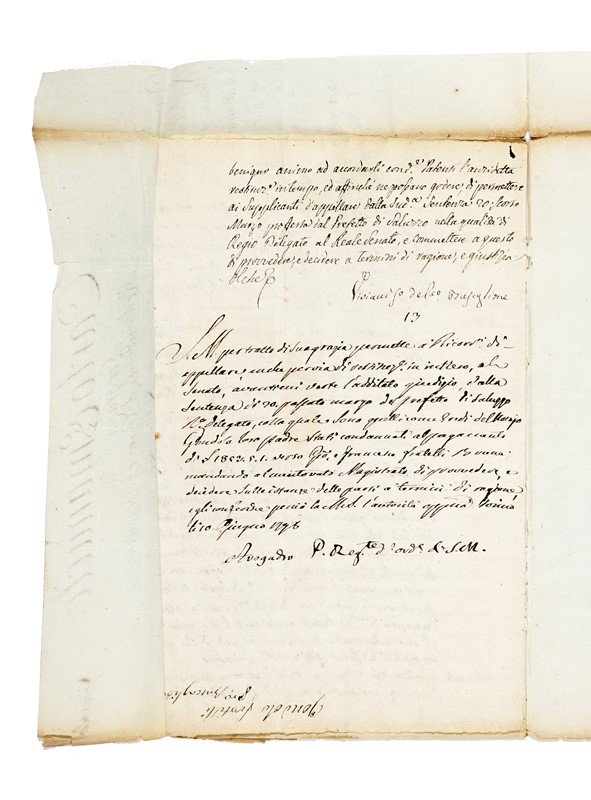 benigno animo ad accordarli cond.e Patenti l'anzidetta
restituz.e in tempo, ed affinché ne possano godere, di permettere
ai Supplicanti d'appellare dalla Sud.a Sentenza 20 scorso
Marzo proferta dal Prefetto di Saluzzo nella qualità di
Regio Delegato al Reale Senato, e commettere a questo
di provvedere, e decidere a termini di ragione, e giustizia
Che
13
S. M. per tratto di sua grazia permette a' Ricorr.i di
appellare anche per via di restituz.e in intiero, al
Senato, avanti cui verte l'additato giudizio, dalla
Sentenza di 20. passato marzo del prefetto di Saluzzo
R.o delegato, colla quale sono quelli come Eredi del
Gondolo loro padre stati condannati al pagamento
di L. 1852.5.1. verso e Francesco fratelli
mandando al mentovato Magistrato di provvedere, e
decidere sulle istanze delle parti a termini di ragione
egli conferisce perciò la M. S. l'autorità opp.na Torino
li 10 Giugno 1798
Avogadro P. Reg.te d'ord.e di S. M.
Gondolo fratelli